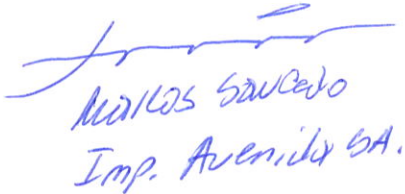 Markos Saucedo
Imp. Avenida SA.